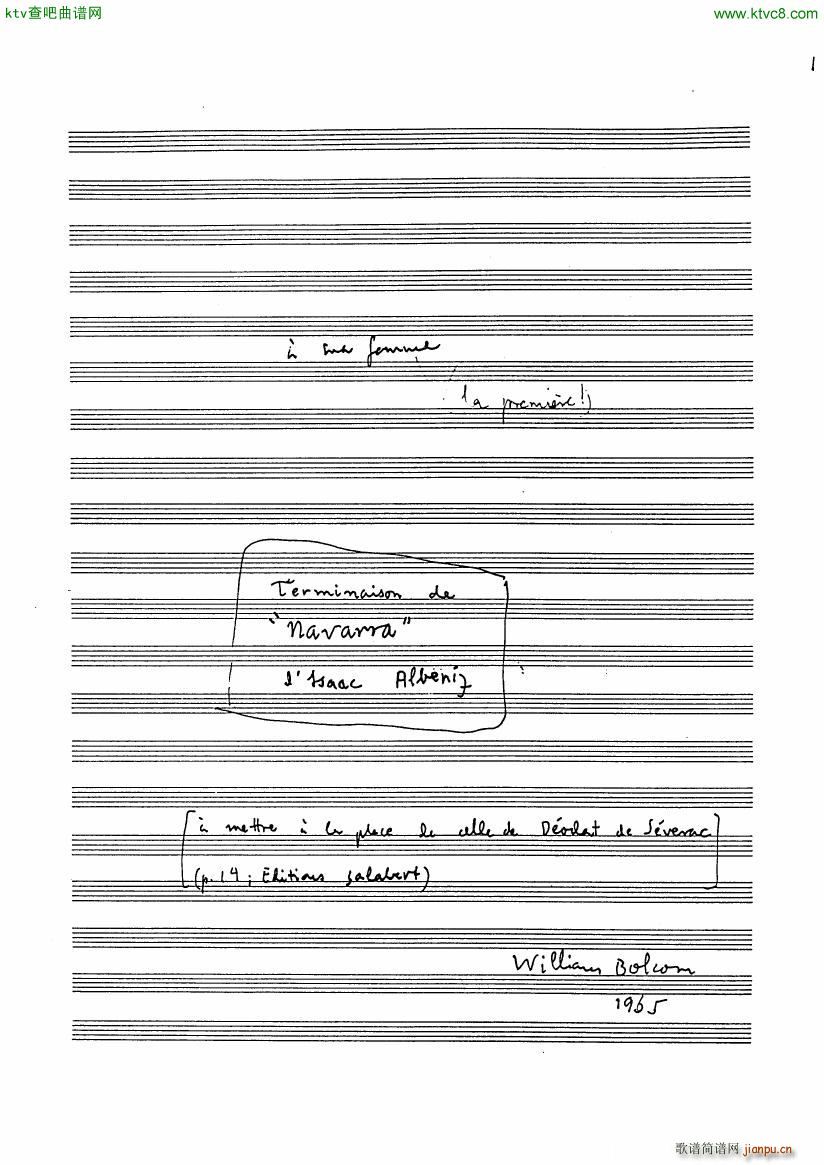 ktv查吧曲谱网
www.ktvc8.com
1
à ma femme
la première!)
Terminaison de
"Navarra"
d'Isaac Albéniz
[à mettre à la place de celle de Déodat de Séverac]
(p.14; Editions Salabert)
William Bolcom
1965
歌谱简谱网 jianpu.cn